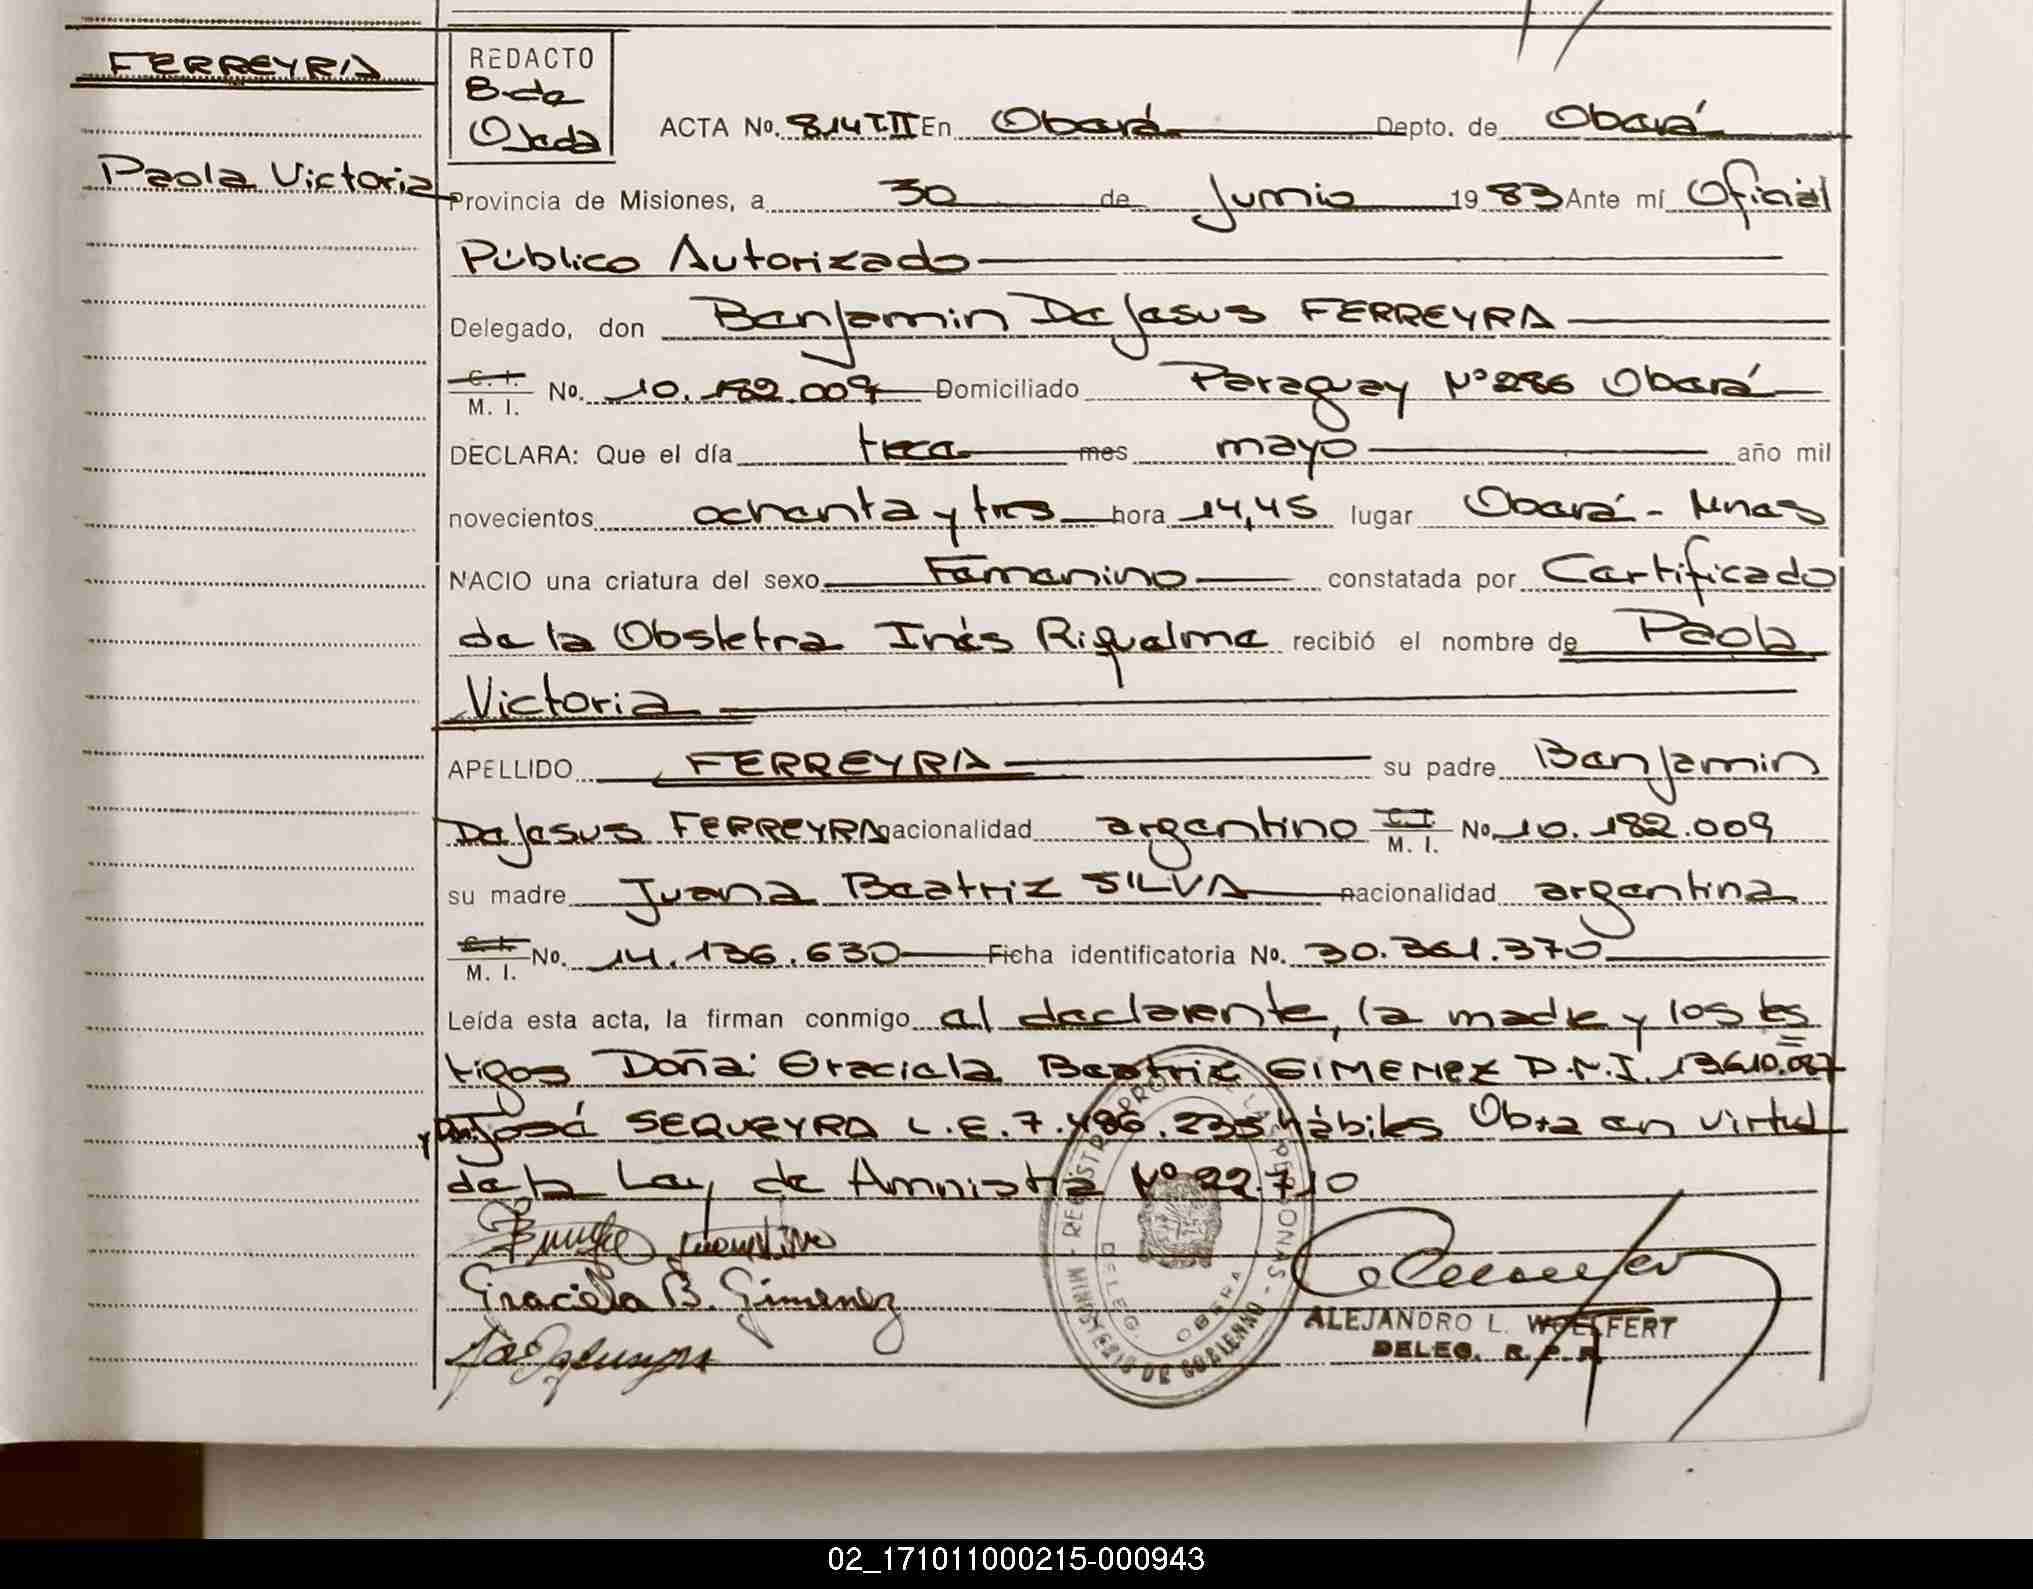 FERREYRA
Paola Victoria
REDACTO
B. de
Ojeda
ACTA No. 814 T.II En Oberá Depto. de Oberá
Provincia de Misiones, a 30 de Junio 1983 Ante mí Oficial
Público Autorizado
Delegado, don Benjamin De Jesus FERREYRA
C. I.
M. I. No. 10.182.009 Domiciliado Paraguay Nº 286 Oberá
DECLARA: Que el día trece mes mayo año mil
novecientos ochenta y tres hora 14,45 lugar Oberá - Mnes
NACIO una criatura del sexo Femenino constatada por Certificado
de la Obstetra Inés Riquelme recibió el nombre de Paola
Victoria
APELLIDO FERREYRA su padre Benjamin
De Jesus FERREYRA nacionalidad argentino C. I. M. I. No. 10.182.009
su madre Juana Beatriz SILVA nacionalidad argentina
C. I. M. I. No. 14.136.630 Ficha identificatoria No. 30.361.370
Leída esta acta, la firman conmigo el declarente, la madre y los tes
tigos Doña: Graciela Beatriz GIMENEZ D.N.I. 13.610.087
y Don: José SEQUEYRA L.E. 7.486.235 hábiles Obra en virtud
de la Ley de Amnistia Nº 22.710
Graciela B. Gimenez
REGISTRO PROV. DE LAS PERSONAS - MINISTERIO DE GOBIERNO -
DELEG. OBERA
ALEJANDRO L. WOELFERT
DELEG. R. P. P.
02_171011000215-000943